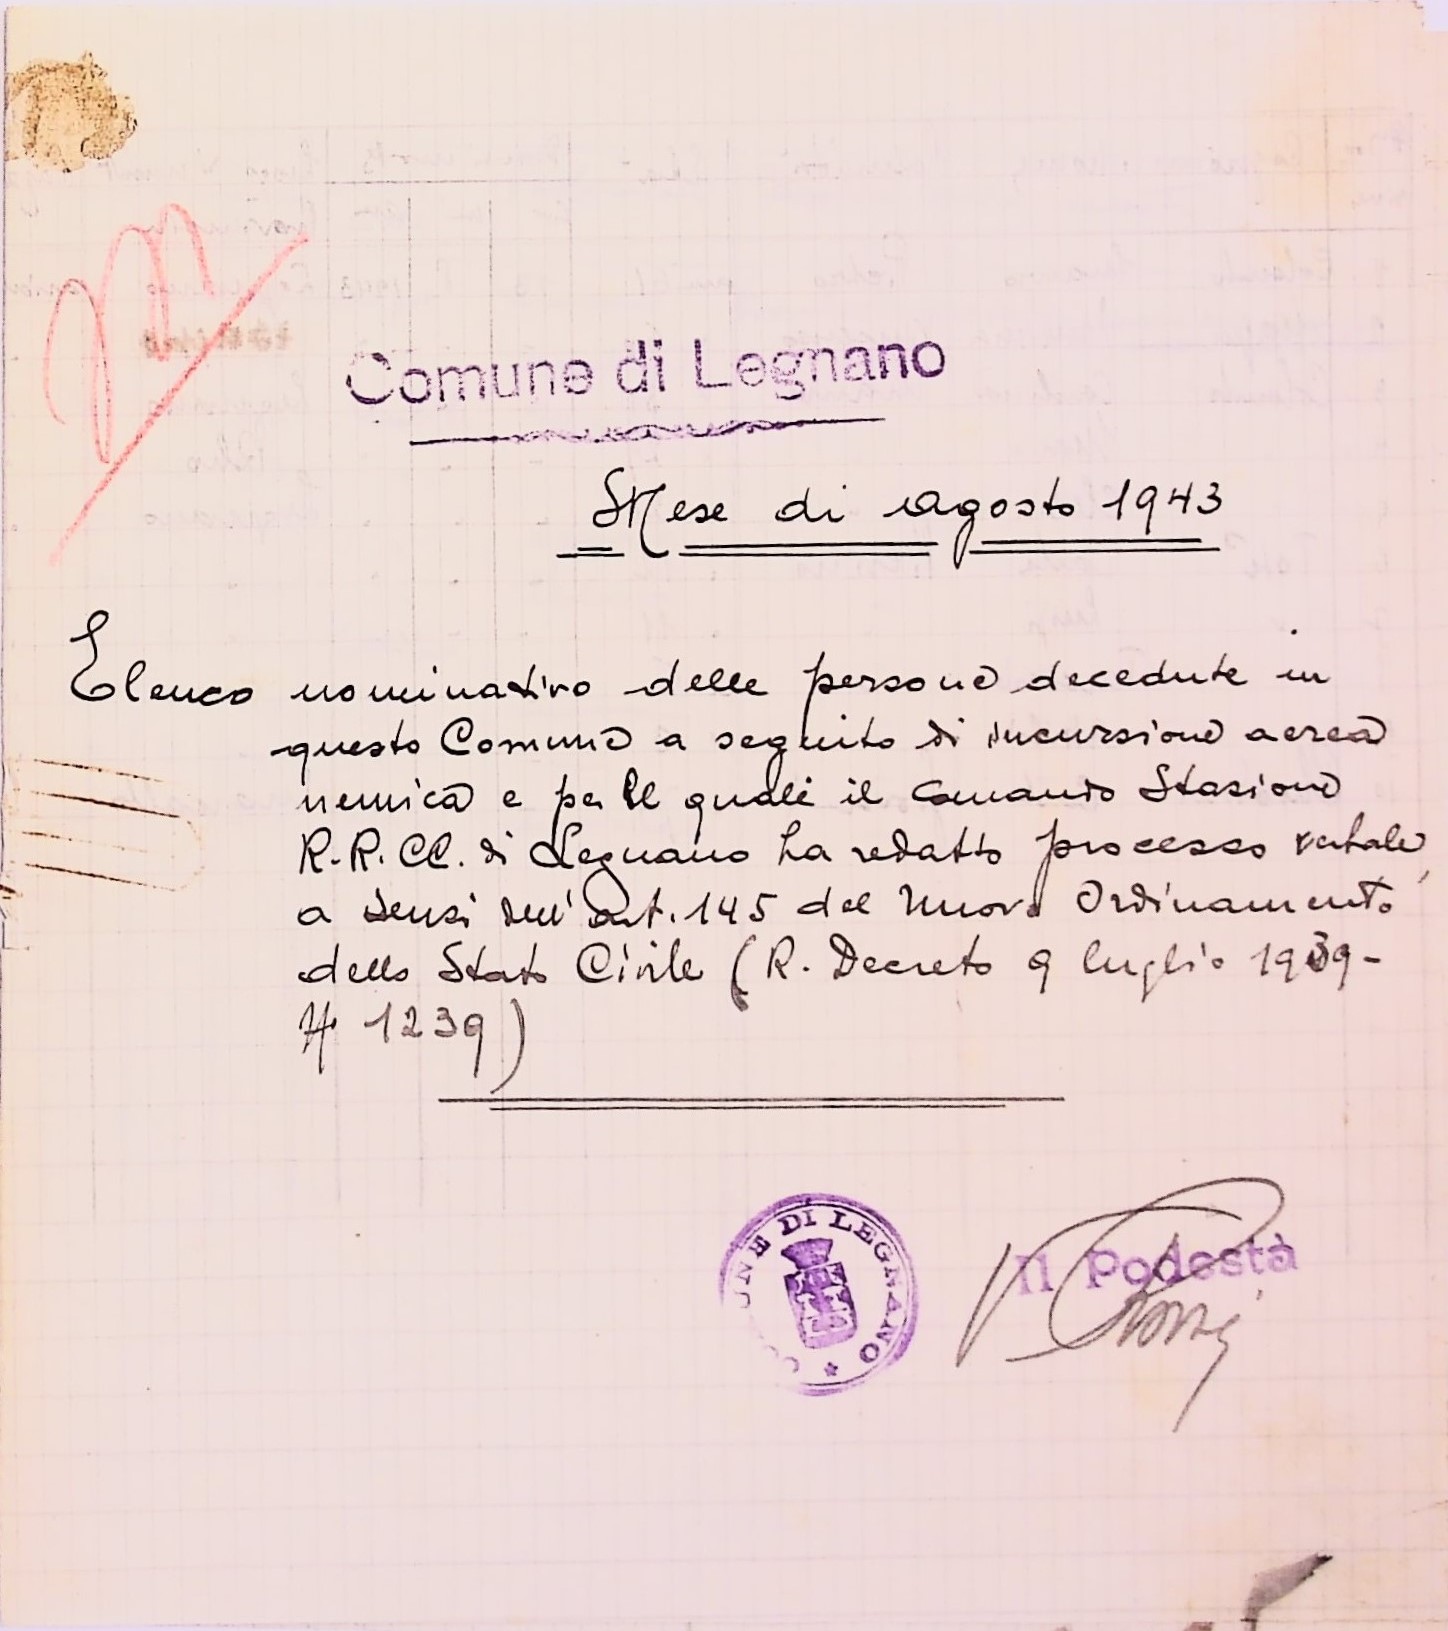 Comune di Legnano
Mese di Agosto 1943
Elenco nominativo delle persone decedute in
questo Comune a seguito di incursione aerea
nemica e per le quali il Comando Stazione
R.R. CC. di Legnano ha redatto processo verbale,
a sensi dell' art. 145 del Nuovo Ordinamento
dello Stato Civile (R. Decreto 9 luglio 1939-
N 1239)
COMUNE DI LEGNANO
Il Podestà